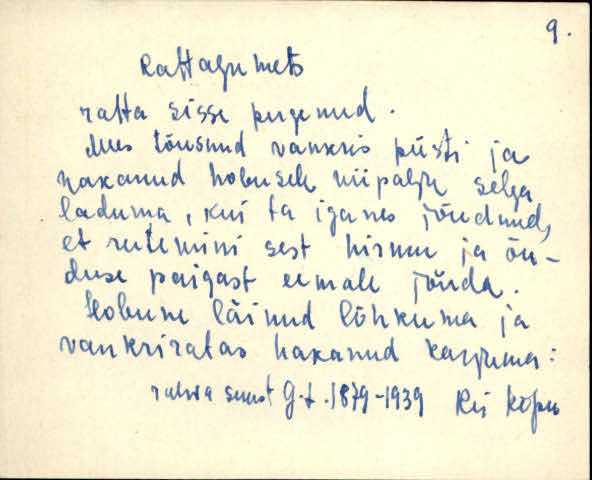 9.
Rattaju mets
ratta sisse pugenud.
Mes tõusnud vankris püsti ja
hakanud hobusele niipalju selga
laduma, kui ta iganes jõudnud,
et rutemini sest hirmu ja õu-
duse paigast eemale jõuda.
Hobune läinud lõhkuma ja
vankriratas hakanud karjuma:
rahva suust G. 1879-1939 Kõpu